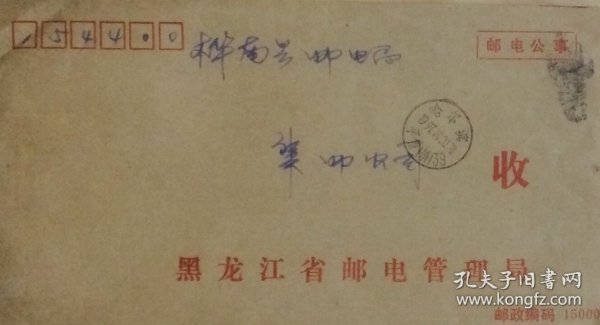 154400
桦南县邮电局
邮电公事
集邮收寄
收
黑龙江省邮电管理局
邮政编码 15000
孔夫子旧书网
www.kongfz.com